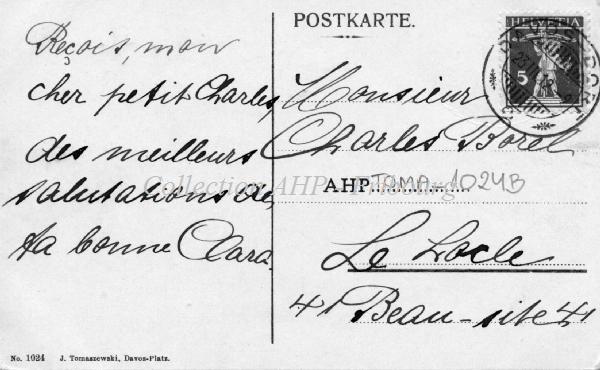 POSTKARTE.
HELVETIA
5
Reçois, mon
cher petit Charles,
des meilleurs
salutations de,
ta bonne Clara.
Monsieur
Charles Borel
AHP TOMA-1024B
Collection AHP
Le Locle
41 Beau-site 41
No. 1024 J. Tomaszewski, Davos-Platz.